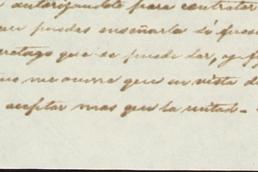 autorizandote para contratar
puedas enseñarla si fuese
que se puede dar, y
me ocurre que en vista de
aceptar mas que la mitad.